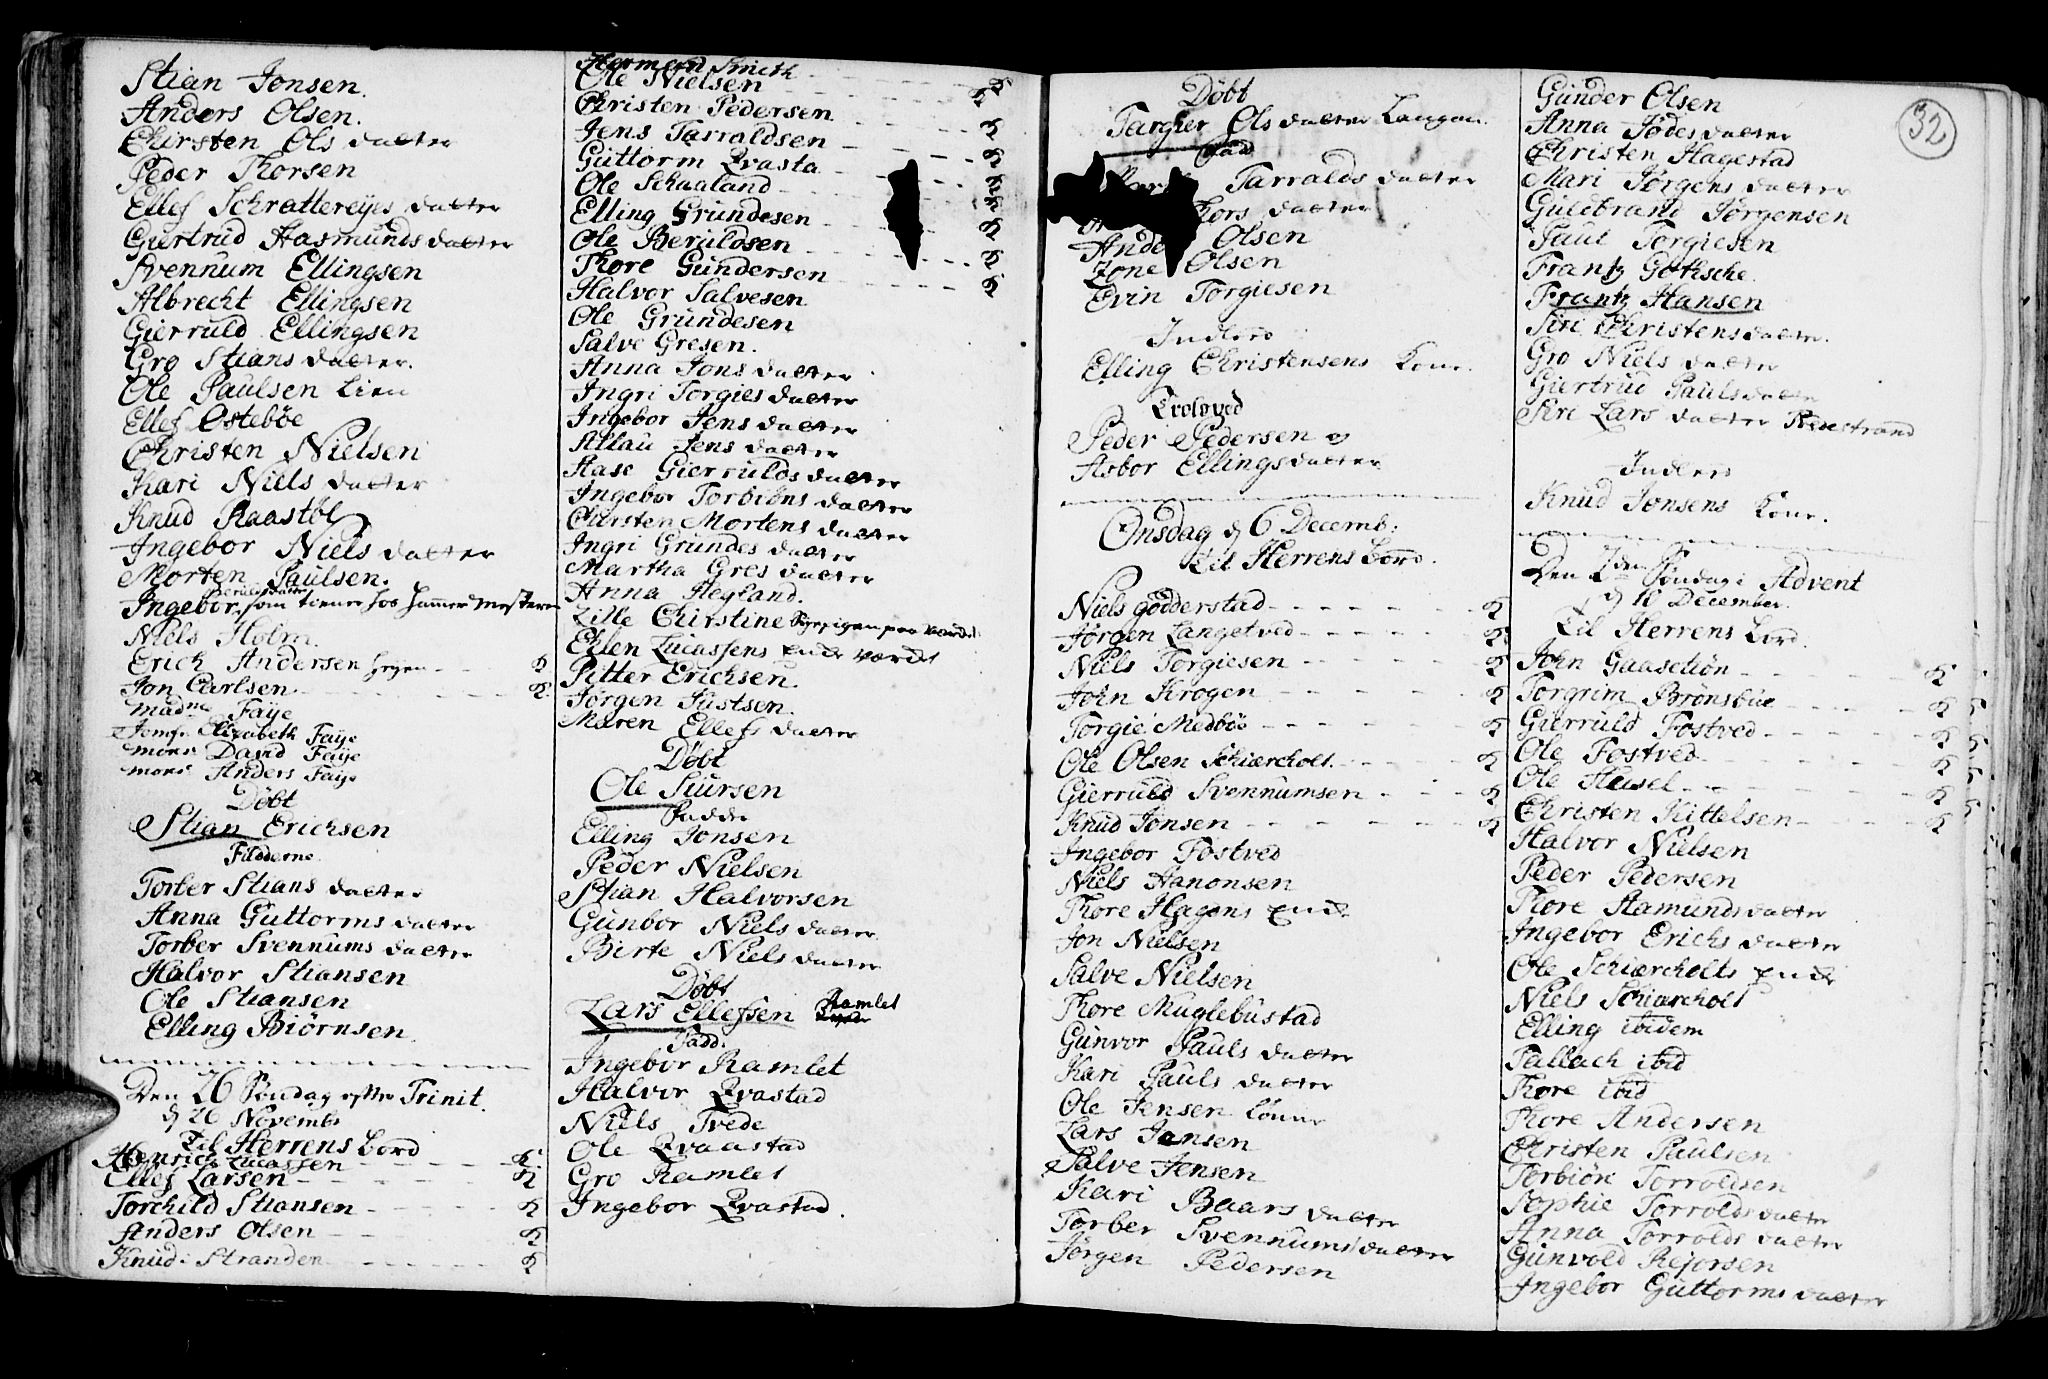 Stian Jonsen.
Anders Olsen.
Chirsten Ols datter
Peder Thorsen
Ellef Schrattereyes datter
Giertrud Aasmunds datter
Svennum Ellingsen
Albrecht Ellingsen
Gierruld Ellingsen
Gro Stians datter.
Ole Paulsen Lien
Ellef Østebøe
Christen Nielsen
Kari Niels datter
Knud Raastøl
Ingebor Niels datter
Morten Paulsen.
Ingebor som tiener hos Hammer Mesteren
Niels Holm.
Erich Andersen - - K
Jon Carlsen - - - K
Madme Faÿe
Jomfr. Elizabeth Faÿe
Mons: David Faÿe
Mons: Anders Faÿe
Døbt
Stian Erichsen
Fadderne
Torber Stians datter
Anna Guttorms datter
Torber Svennums datter
Halvor Stiansen
Ole Stiansen
Elling Biørnsen
Den 26 Søndag efter Trinit.
d 26 Novembr
Til Herrens Bord
Henrich Lucassen - - - K
Ellef Larsen - - - K
Torchild Stiansen - - - K
Anders Olsen - - K
Knud Stranden - - - K
Herman Smith - - - K
Ole Nielsen - - - K
Christen Pedersen - - - K
Jens Tarraldsen - - - K
Guttorm Qvasta - - - K
Ole Schaaland - - - K
Elling Grundesen - - - K
Ole Beruldsen - - - K
Thore Gundersen - - - K
Halvor Salvesen
Ole Grundesen
Salve Gresen.
Anna Jons datter
Ingri Torgies datter
Ingebor Jens datter
Allau Jens datter
Aase Gierrulds datter
Ingebor Torbiøns datter
Chirsten Mortens datter
Ingri Grundes datter
Martha Gres datter
Anna Hegland.
Zille Chirstine
Ellen Lucassens Enke Værdt
Pitter Erichsen.
Jørgen Justsen.
Maren Ellefs datter
Døbt
Ole Siursen
Fadde
Elling Jonsen
Peder Nielsen
Stian Halvorsen
Gunbor Niels datter
Birte Niels datter
Døbt
Lars Ellefsen Ramlet
Fadd.
Ingebor Ramlet
Halvor Qvastad
Niels Tvede
Ole Qvaastad
Gro Ramlet
Ingebor Qvastad.
32
Døbt
Targier Ols datter Langan.
Fad
Tarralds datter
Thors datter
Anders Olsen
Zone Olsen
Evin Torgiesen
Indlero
Elling Christensens Kone.
Troloved
Peder Pedersen og
Asbor Ellings datter
Onsdag d 6 Decemb:
Til Herrens Bord.
Niels Godderstad - - - K
Jørgen Langetved - - - K
Niels Torgiesen - - - K
John Krogen - - - K
Torgie Medbøe - - - K
Ole Olsen Schiærcholt. - - - K
Gierruld Svennumsen - - - K
Knud Jonsen - - - K
Ingebor Fostved
Niels Aanonsen
Thore Hagens Enke
Jon Nielsen
Salve Nielsen
Thore Muglebustad
Gunvor Pauls datter
Kari Pauls datter
Ole Jensen Lønne
Lars Jansen
Salve Jensen
Kari Baars datter
Torber Svennums datter
Jørgen Pedersen
Gunder Olsen
Anna Jodes datter
Christen Hagestad
Mari Jørgens datter
Gulebrand Jørgensen
Paul Torgiesen
Frantz Gothsche
Frantz Hansen
Siri Christens datter.
Gro Niels datter
Giertrud Pauls datter
Siri Lars datter Nedestrand
Indlero
Knud Jonsens Kone.
Den 2den Søndag i Advent
d 10 December.
Til Herrens Bord
John Gaasetiøn - - - K
Torgrim Brønsbue - - - K
Gierruld Fostved - - - K
Ole Fostved - - - K
Ole Heisel - - - K
Christen Kittelsen - - - K
Halvor Nielsen
Peder Pedersen
Thore Aamunds datter
Ingebor Erichs datter
Ole Schiærcholts Enke
Niels Schiærcholt
Elling ibidem
Tallach ibid
Thore ibid
Thore Andersen
Christen Paulsen
Torbiøn Torroldsen
Sophie Torrolds datter
Anna Torrolds datter
Gunvold Rejorsen
Ingebor Guttorms datter